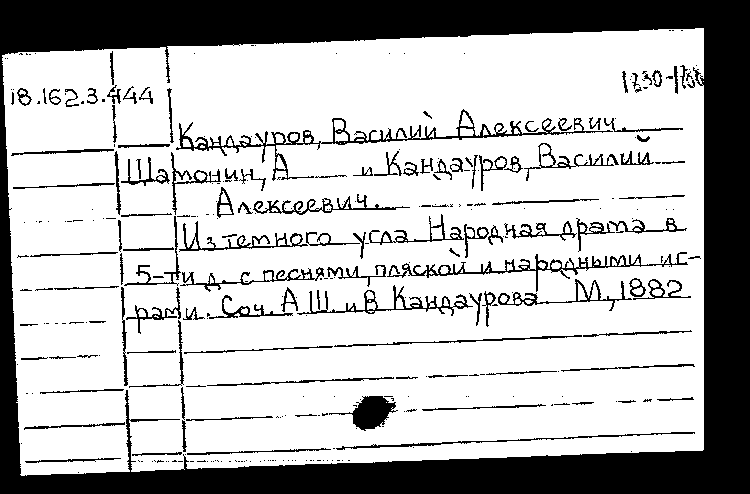 18.162.3.444
Кандауров, Василий Алексеевич.
Шамонин, А и Кандауров, Василий
Алексеевич.
Из темного угла. Народная драма в
5-ти д. с песнями, пляской и народными иг-
рами. Соч. А.Ш. и В Кандаурова. М., 1882